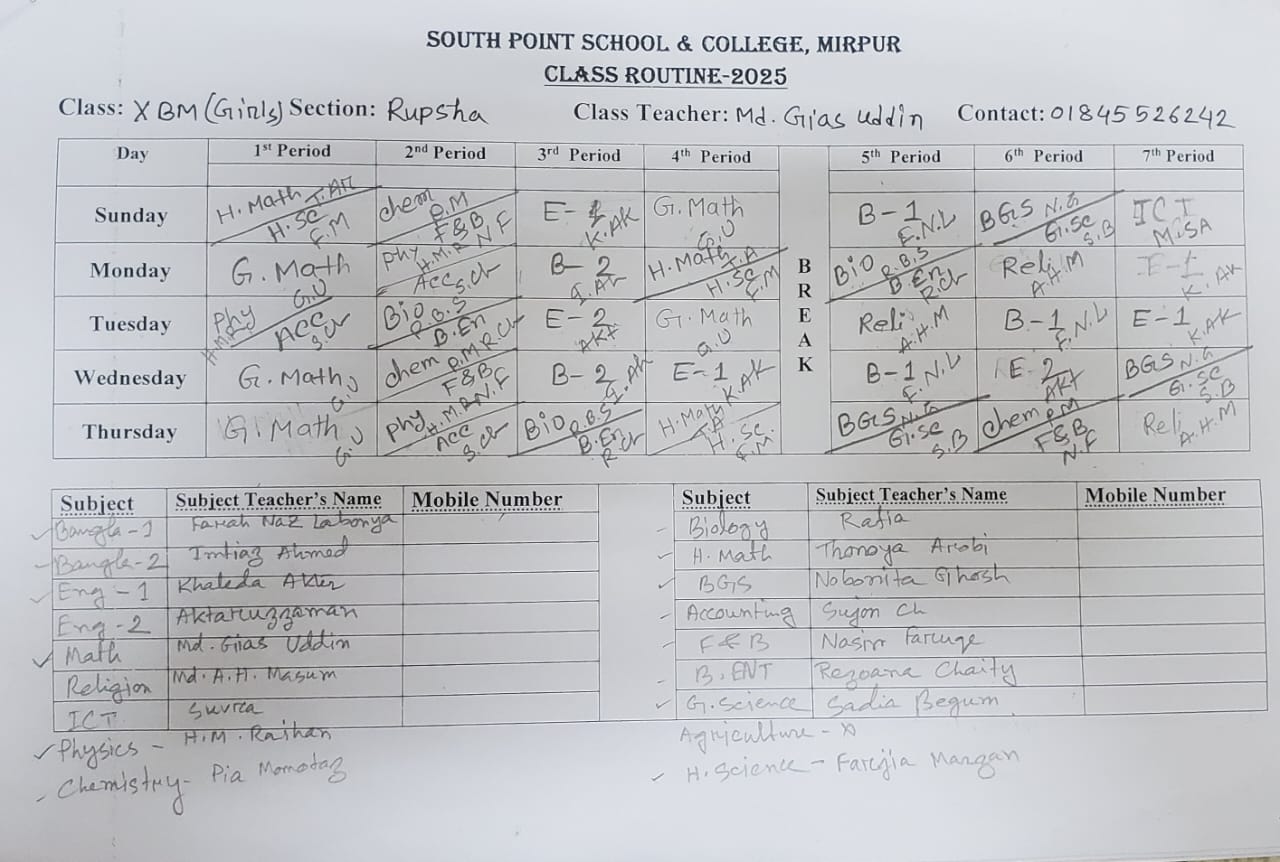 SOUTH POINT SCHOOL & COLLEGE, MIRPUR
CLASS ROUTINE-2025
Class: X BM (Girls) Section: Rupsha Class Teacher: Md. Gias Uddin Contact: 01845526242
Day 1st Period 2nd Period 3rd Period 4th Period BREAK 5th Period 6th Period 7th Period
Sunday H. Math T.AR / H. SC F.M chem P.M / F&B N.F E-1 K.AK G. Math G.U B-1 F.N.L BGS N.G / G.SC S.B ICT
Monday G. Math G.U Phy H.M.R / Acc S.ch B-2 I.AH H. Math T.A / H. SC F.M Bio R.B.S / B.En R.ch Reli A.H.M E-1 K.AK
Tuesday Phy H.M.R / ACC S.ch Bio R.B.S / B.En R.ch E-2 AKT G. Math G.U Reli A.H.M B-1 F.N.L E-1 K.AK
Wednesday G. Math G.U chem P.M / F&B N.F B-2 I.AH E-1 K.AK B-1 F.N.L E-2 AKT BGS N.G / G.SC S.B
Thursday G. Math G.U Phy H.M.R / ACC S.ch Bio R.B.S / B.En R.ch H. Math T.A / H. Sc. F.M BGS N.G / G.SC S.B chem P.M / F&B N.F Reli A.H.M
Subject Subject Teacher's Name Mobile Number Subject Subject Teacher's Name Mobile Number
Bangla-1 Farah Naz Labonya Biology Rafia
Bangla-2 Imtiaz Ahmed H. Math Thonoya Arobi
Eng-1 Khaleda Akter BGS Nobonita Ghosh
Eng-2 Aktaruzzaman Accounting Sujon Ch
Math Md. Gias Uddin F&B Nasir Faruqe
Religion Md. A.H. Masum B. ENT Rezoana Chaity
ICT Suvra G. Science Sadia Begum
Physics - H.M. Raihan Agriculture - x
Chemistry - Pia Momotaz H. Science - Farjia Marzan